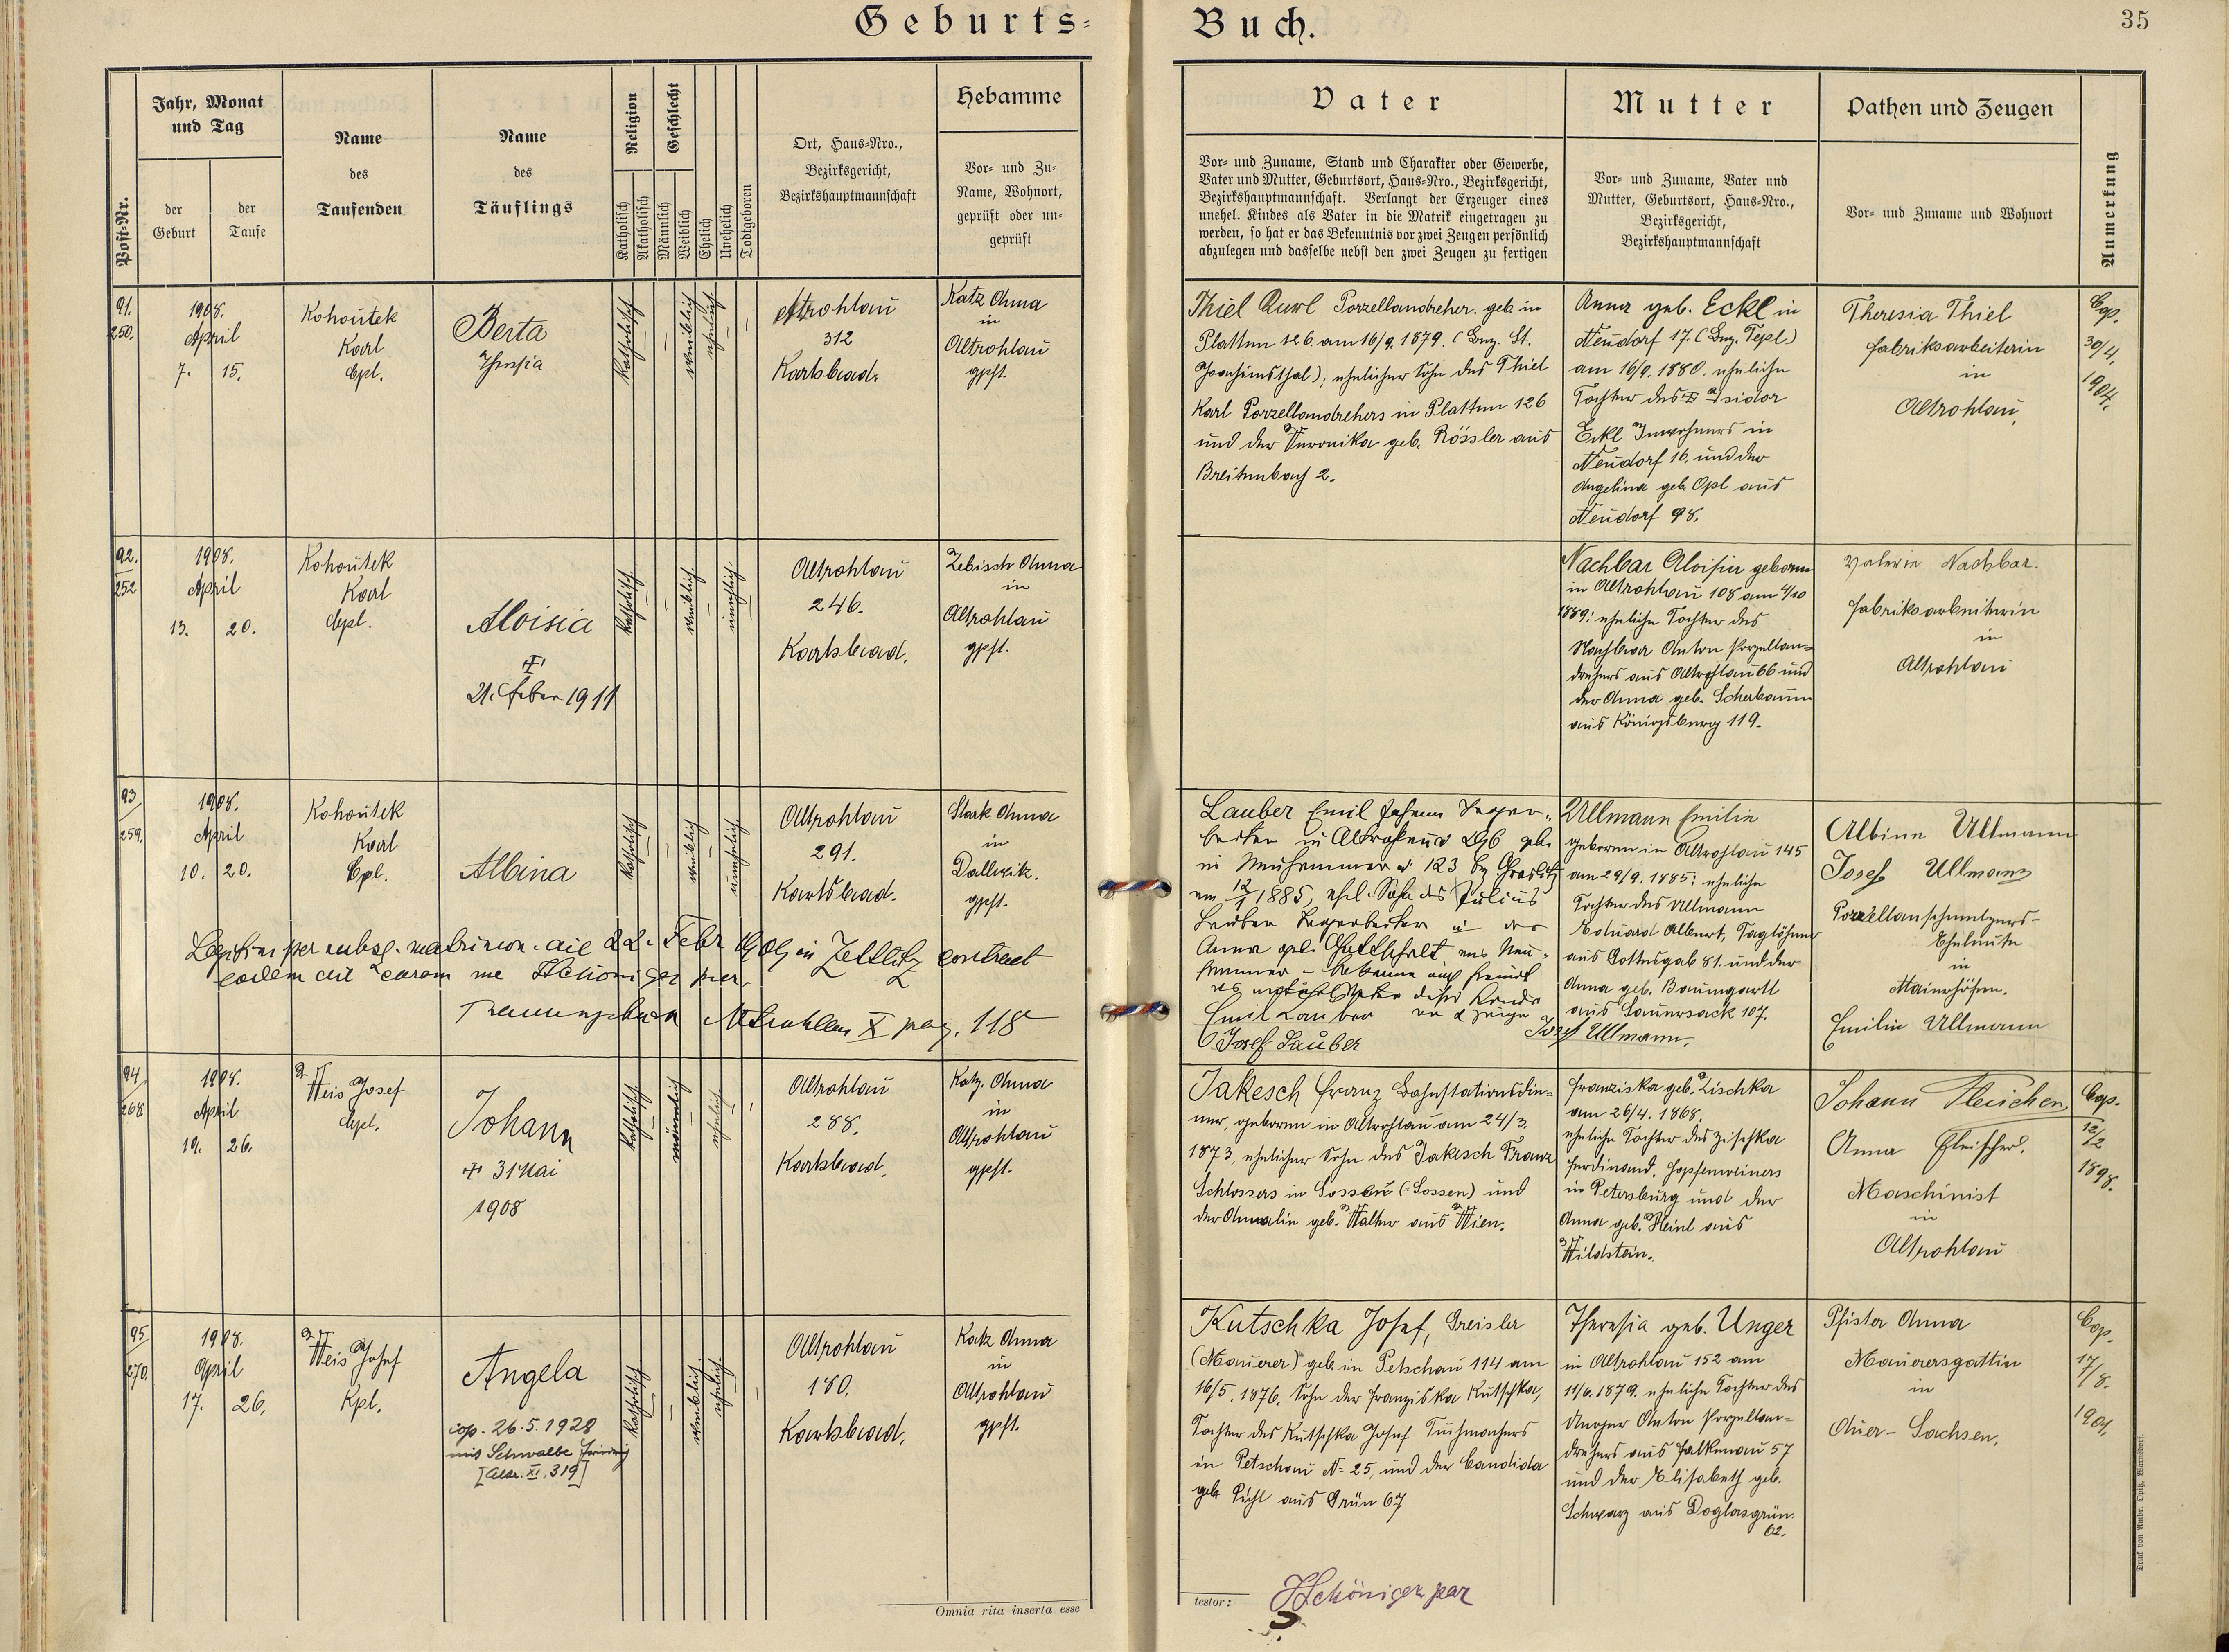 Geburts-
Buch.
35
Post-Nr.
Jahr, Monat
und Tag
der
Geburt
der
Taufe
Name
des
Taufenden
Name
des
Täuflings
Religion
Katholisch
Akatholisch
Geschlecht
Männlich
Weiblich
Ehelich
Unehelich
Todtgeboren
Ort, Haus-Nro.,
Bezirksgericht,
Bezirkshauptmannschaft
Hebamme
Vor- und Zu-
Name, Wohnort,
geprüft oder un-
geprüft
Vater
Vor- und Zuname, Stand und Charakter oder Gewerbe,
Vater und Mutter, Geburtsort, Haus-Nro., Bezirksgericht,
Bezirkshauptmannschaft. Verlangt der Erzeuger eines
unehel. Kindes als Vater in die Matrik eingetragen zu
werden, so hat er das Bekenntnis vor zwei Zeugen persönlich
abzulegen und dasselbe nebst den zwei Zeugen zu fertigen
Mutter
Vor- und Zuname, Vater und
Mutter, Geburtsort, Haus-Nro.,
Bezirksgericht,
Bezirkshauptmannschaft
Pathen und Zeugen
Vor- und Zuname und Wohnort
Anmerkung
91.
250.
1908.
April
7. 15.
Kohoutek
Karl
Cpl.
Berta
Theresia
katholisch
weiblich
ehelich
Altrohlau
312
Karlsbad.
Katz Anna
in
Altrohlau
gpft.
Thiel Karl Porzellandreher. geb. in
Platten 126. am 16/9. 1879. (Bez. St.
Joachimsthal); ehelicher Sohn des Thiel
Karl Porzellandrehers in Platten 126
und der Veronika geb. Rössler aus
Breitenbach 2.
Anna geb. Eckl in
Neudorf 17. (Bez. Tepl)
am 16/9. 1880. eheliche
Tochter des Isidor
Eckl Inwohners in
Neudorf 16. und der
Angelina geb. Opl aus
Neudorf 98.
Theresia Thiel
Fabriksarbeiterin
in
Altrohlau
Cop.
30/4.
1904.
92.
252
1908.
April
13. 20.
Kohoutek
Karl
Cpl.
Aloisia
21. Feber 1911
katholisch
weiblich
unehelich
Altrohlau
246.
Karlsbad.
Zebisch Anna
in
Altrohlau
gpft.
Nachbar Aloisia geboren
in Altrohlau 108 am 4/10
1889; eheliche Tochter des
Nachbar Anton Porzellan-
drehers aus Altrohlau 66 und
der Anna geb. Scherbaum
aus Königsberg 119.
Valerie Nachbar.
Fabriksarbeiterin
in
Altrohlau
93
259.
1908.
April
10. 20.
Kohoutek
Karl
Cpl.
Albina
katholisch
weiblich
unehelich
Altrohlau
291.
Karlsbad.
Stark Anna
in
Dallwitz.
gpft.
Lauber Emil Johann
in Altrohlau 296 geb.
in Neuhammer 123 Bz Graslitz
am 12/1 1885, ehel. Sohn des Julius
Lauber
Anna geb. Gottschalk aus Neu-
hammer - bekenne
Emil Lauber
Josef Lauber
Josef Ullmann.
Ullmann Emilie
geboren in Altrohlau 145
am 29/9. 1885; eheliche
Tochter des Ullmann
Eduard Albert, Taglöhner
aus Gottesgab 81. und der
Anna geb. Baumgartl
aus Sauersack 107.
Albine Ullmann
Josef Ullmann
Porzellanschmelzers-
Eheleute
in
Maierhöfen.
Emilie Ullmann
Legitim per subseq. matrimon. die 22. Febr 1909 in Zettlitz contract
eodem die coram me Schöniger par.
Trauungsbuch Altrohlau X pag. 118
94
268.
1908.
April
19. 26.
Weis Josef
Cpl.
Johann
31 Mai
1908
katholisch
männlich
ehelich
Altrohlau
288.
Karlsbad.
Katz. Anna
in
Altrohlau
gpft.
Jakesch Franz Bahnstationsdie-
ner, geboren in Altrohlau am 24/3.
1873, ehelicher Sohn des Jakesch Franz
Schlossers in Sossau (=Sossen) und
der Amalie geb. Walter aus Wien.
Franziska geb. Zischka
am 26/4. 1868,
eheliche Tochter des Zischka
Ferdinand. Hopfenweiners
in Petersburg und der
Anna geb. Heinl aus
Wildstein.
Johann
Anna Fleischer.
Maschinist
in
Altrohlau
Cop.
12/2
1898.
95
270.
1908.
April
17. 26.
Weis Josef
Kpl.
Angela
cop. 26.5.1928
mit Schwalbe Friedrich
[Altr. XI. 319]
katholisch
weiblich
ehelich
Altrohlau
180.
Karlsbad.
Katz Anna
in
Altrohlau
gpft.
Kutschka Josef, Greisler
(Maurer) geb. in Petschau 114 am
16/5. 1876. Sohn der Franziska Kutschka,
Tochter des Kutschka Josef Tuchmachers
in Petschau N- 25, und der Candida
geb. Pichl aus Grün 67
Theresia geb. Unger
in Altrohlau 152 am
11/6. 1879. eheliche Tochter des
Unger Anton Porzellan-
drehers aus Falkenau 57
und der Elisabeth geb.
Schwarz aus Doglasgrün.
62.
Pfister Anna
Maurersgattin
in
Auer- Sachsen.
Cop.
17/8.
1901.
Omnia rita inserta esse
testor:
Schöniger par
Druck von Ambr. Opitz, Warnsdorf.